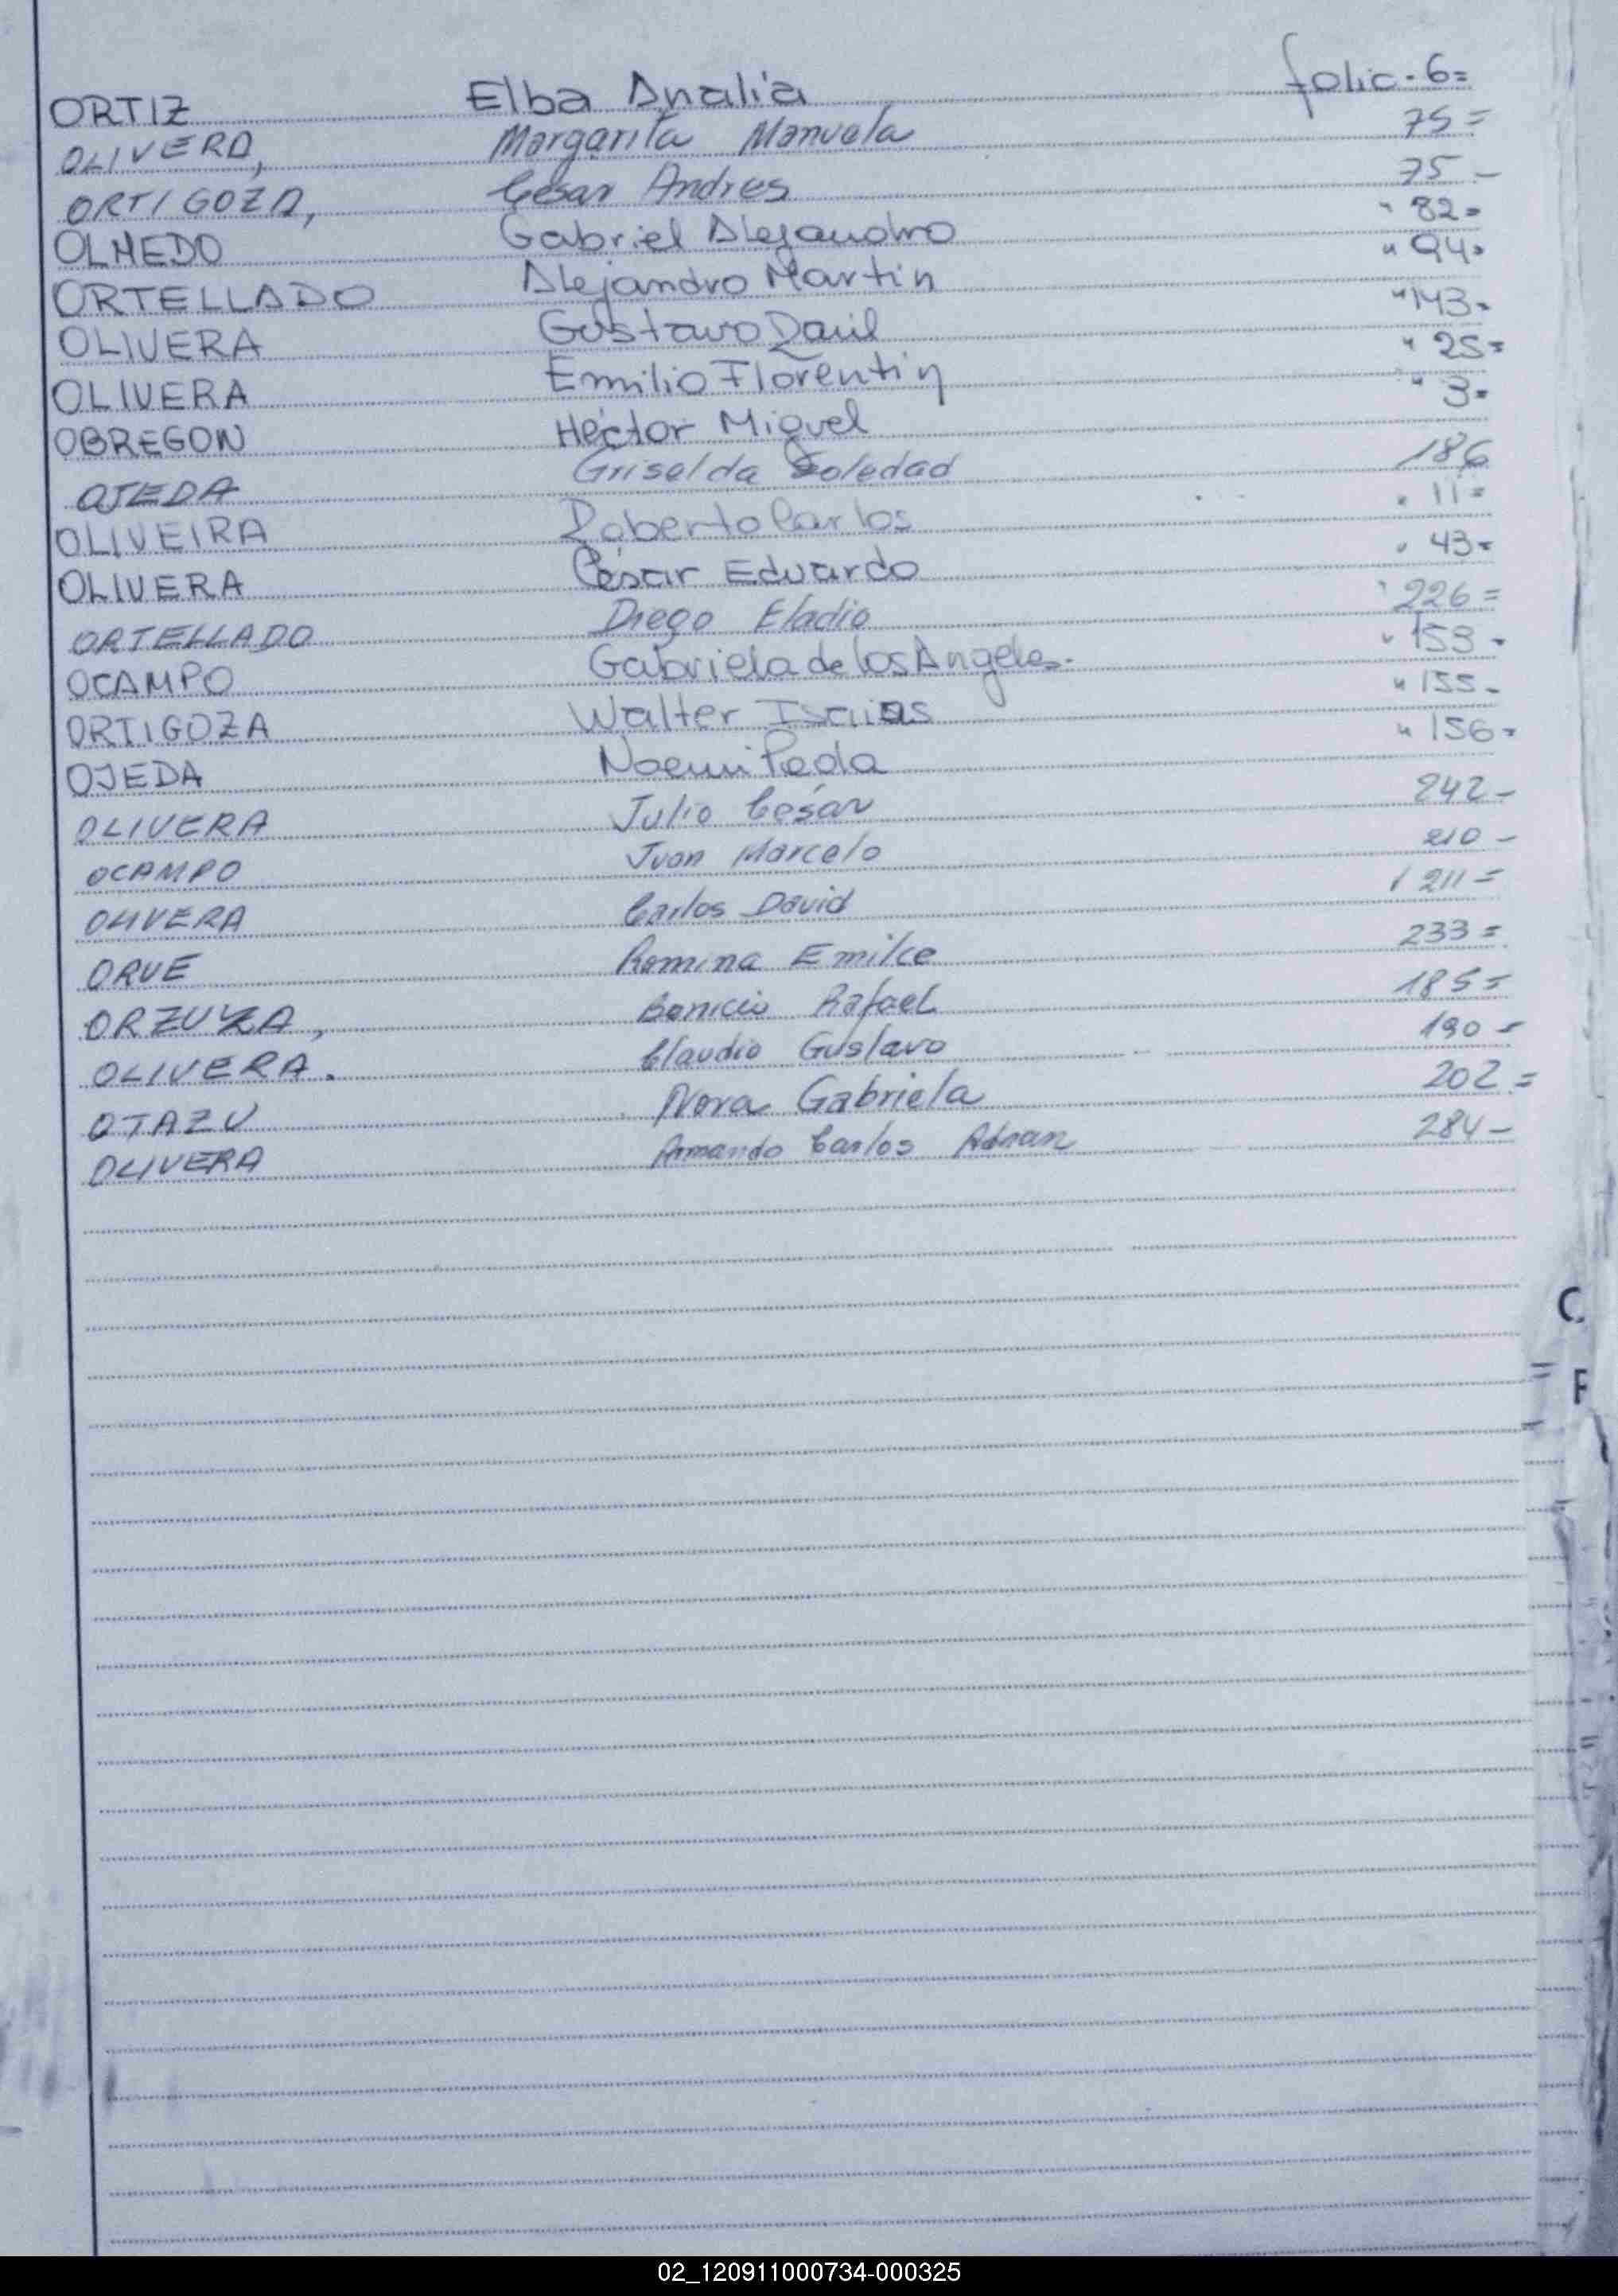 ORTIZ Elba Analia folio. 6=
OLIVERA, Margarita Manuela 75=
ORTIGOZA, César Andres 75-
OLMEDO Gabriel Alejandro " 82=
ORTELLADO Alejandro Martin " 94=
OLIVERA Gustavo Raúl " 143=
OLIVERA Emilio Florentin " 25=
OBREGON Héctor Miguel " 3=
OJEDA Griselda Soledad 186
OLIVEIRA Roberto Carlos " 11=
OLIVERA César Eduardo " 43=
ORTELLADO Diego Eladio " 226=
OCAMPO Gabriela de los Angeles. " 153-
ORTIGOZA Walter Isaias " 155-
OJEDA Noemi " 156-
OLIVERA Julio César 242-
OCAMPO Juan Marcelo 210-
OLIVERA Carlos David " 211=
ORUE Romina Emilce 233=
ORZUZA, Rafael 185=
OLIVERA. Claudio Gustavo 190-
OTAZU Nora Gabriela 202=
OLIVERA Armando Carlos Adrian 284-
C
F
02_120911000734-000325